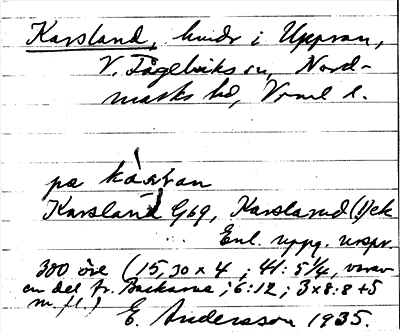 Karsland, hvidr i Uppsan,
V. Fågelviks sn, Nord-
marks hd, Vrml l.
på kartan
Karsland G69, Karslanud (!) ek
Enl. uppg. urspr.
300 öre (15,30 x 4 ; 41: 5 1/4, varav
en del fr. Backarna ; 6:12 ; 3x8:8+5
m (!)
E. Andersson 1935.